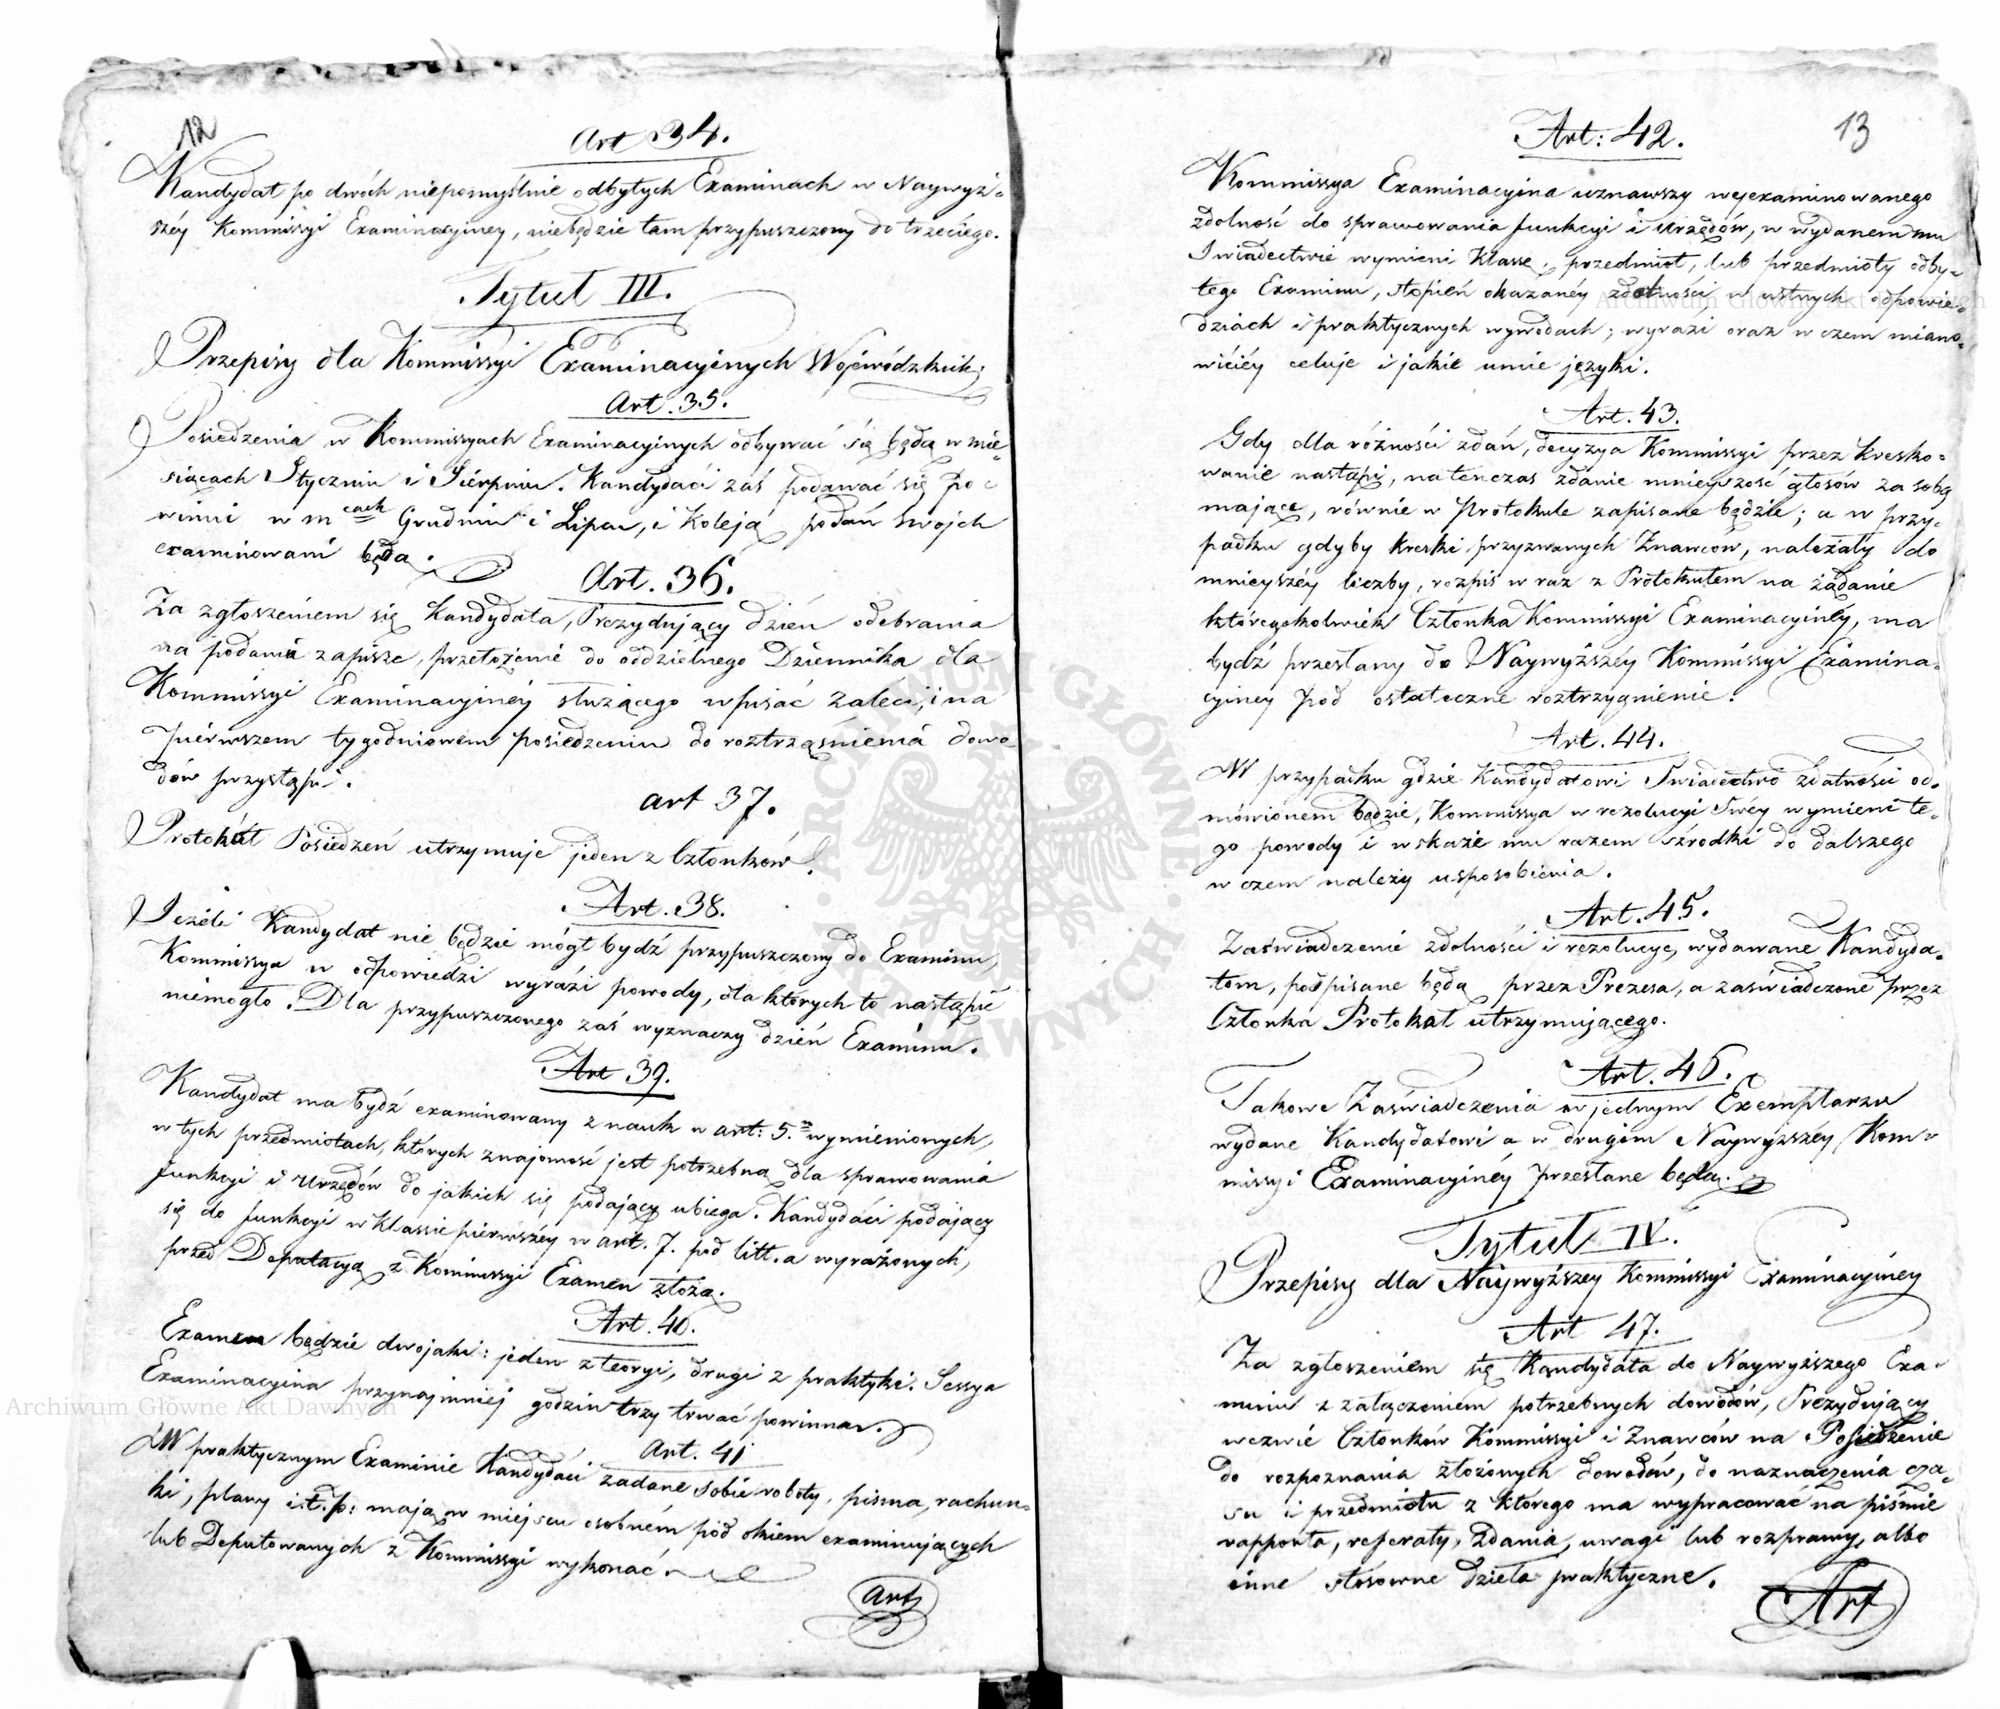 12
Art 34.
Kandydat po dwóch niepomyślnie odbytych Examinach w Naywyż-
széy Kommissyi Examinacyiney, niebędzie tam przypuszczony do trzeciego.
Tytuł III.
Przepisy dla Kommissyi Examinacyinych Wojewódzkich;
Art. 35.
Posiedzenia w Kommissyach Examinacyinych odbywać się będą w mie-
siącach Styczniu i Sierpniu. Kandydaći zaś podawać się po-
winni w m cach Grudniu i Lipcu, i koleją podań swojch
examinowani będą.
Art. 36.
Za zgłoszeniem się Kandydata, Prezydujący dzień odebrania
na podaniu zapisze, przełożenie do oddzielnego Dziennika dla
Kommissyi Examinacyinéy służącego wpisać zaleci, i na
pierwszem tygodniowem posiedzeniu do roztrząśnienia dowo-
dów przystąpi.
art 37.
Protokuł Posiedzeń utrzymuje jeden z Członków.
Art. 38.
Jeżeli Kandydat nie będzie mógł bydź przypuszczony do Examinu,
Kommissya w odpowiedzi wyrazi powody, dla których to nastąpić
niemogło. Dla przypuszczonego zaś wyznaczy dzień Examinu.
Art 39.
Kandydat ma bydź examinowany z nauk w art: 5. wymienionych,
w tych przedmiotach, których znajomość jest potrzebna dla sprawowania
funkcyi i urzędów do jakich się podający ubiega. Kandydaći podający
się do funkcyi w klassie pierwszéy w art. 7. pod litt. a wyrażonych,
przed Deputacyą z Kommissyi Examen złożą.
Art. 40.
Examen będzie dwojaki: jeden z teoryi, drugi z praktyki. Sessya
Examinacyina przynajmniéj godzin trzy trwać powinna.
Art. 41
W praktycznym Examinie Kandydaći zadane sobie roboty, pisma, rachun-
ki, plany i t. p: mają w miejscu osobném pod okiem examinujących
lub Deputowanych z Kommissyi wykonać.
Art
13
Art: 42.
Kommissya Examinacyina uznawszy wyexaminowanego
zdolność do sprawowania funkcyi i urzędów, w wydanem mu
Swiadectwie wymieni Klassę, przedmiot, lub przedmioty odby-
tego Examinu, stopień okazanéy zdatności w ustnych odpowie-
dziach i praktycznych wywodach; wyrazi oraz w czem miano-
wićiéy celuje i jakie umie języki.
Art. 43.
Gdy dla różności zdań, decyzya Kommissyi przez kresko-
wanie nastąpi, natenczas zdanie mnieyszość głosów za sobą
mające, równie w Protokule zapisane będzie; a w przy-
padku gdyby kreski przyzwanych Znawców, należały do
mnieyszéy liczby, rozpis wraz z Protokułem na żądanie
któregokolwiek Członka Kommissyi Examinacyinéy, ma
bydź przesłany do Naywyższéy Kommissyi Examina-
cyinéy pod ostateczne roztrzygnienie.
Art. 44.
W przypadku gdzie Kandydatowi Swiadectwo zdatności od-
mówionem będzie, Kommissya w rezolucyi swey wymieni te-
go powody i wskaże mu razem szrodki do dalszego
w czem należy usposobienia.
Art. 45.
Zaświadczenie zdolności i rezolucye, wydawane Kandyda-
tom, podpisane będą przez Prezesa, a zaświadczone przez
Członka Protokuł utrzymującego.
Art. 46.
Takowe Zaświadczenia w jednym Exemplarzu
wydane Kandydatowi a w drugim Naywyższéy Kom-
missyi Examinacyinéy przesłane będą.
Tytuł IV.
Przepisy dla Naywyższey Kommissyi Examinacyiney
Art 47.
Za zgłoszeniem się Kandydata do Naywyższego Exa-
minu z załączeniem potrzebnych dowodów, Prezydujący
wezwie Członków Kommissyi i Znawców na Posiedzenie
do rozpoznania złożonych dowodów, do naznaczenia cza-
su i przedmiotu z którego ma wypracować na piśmie
rapporta, referaty, zdania, uwagi lub rozprawy, albo
inne stosowne dzieła praktyczne.
Art
Archiwum Główne Akt Dawnych
Archiwum Główne Akt Dawnych
ARCHIWUM GŁÓWNE AKT DAWNYCH